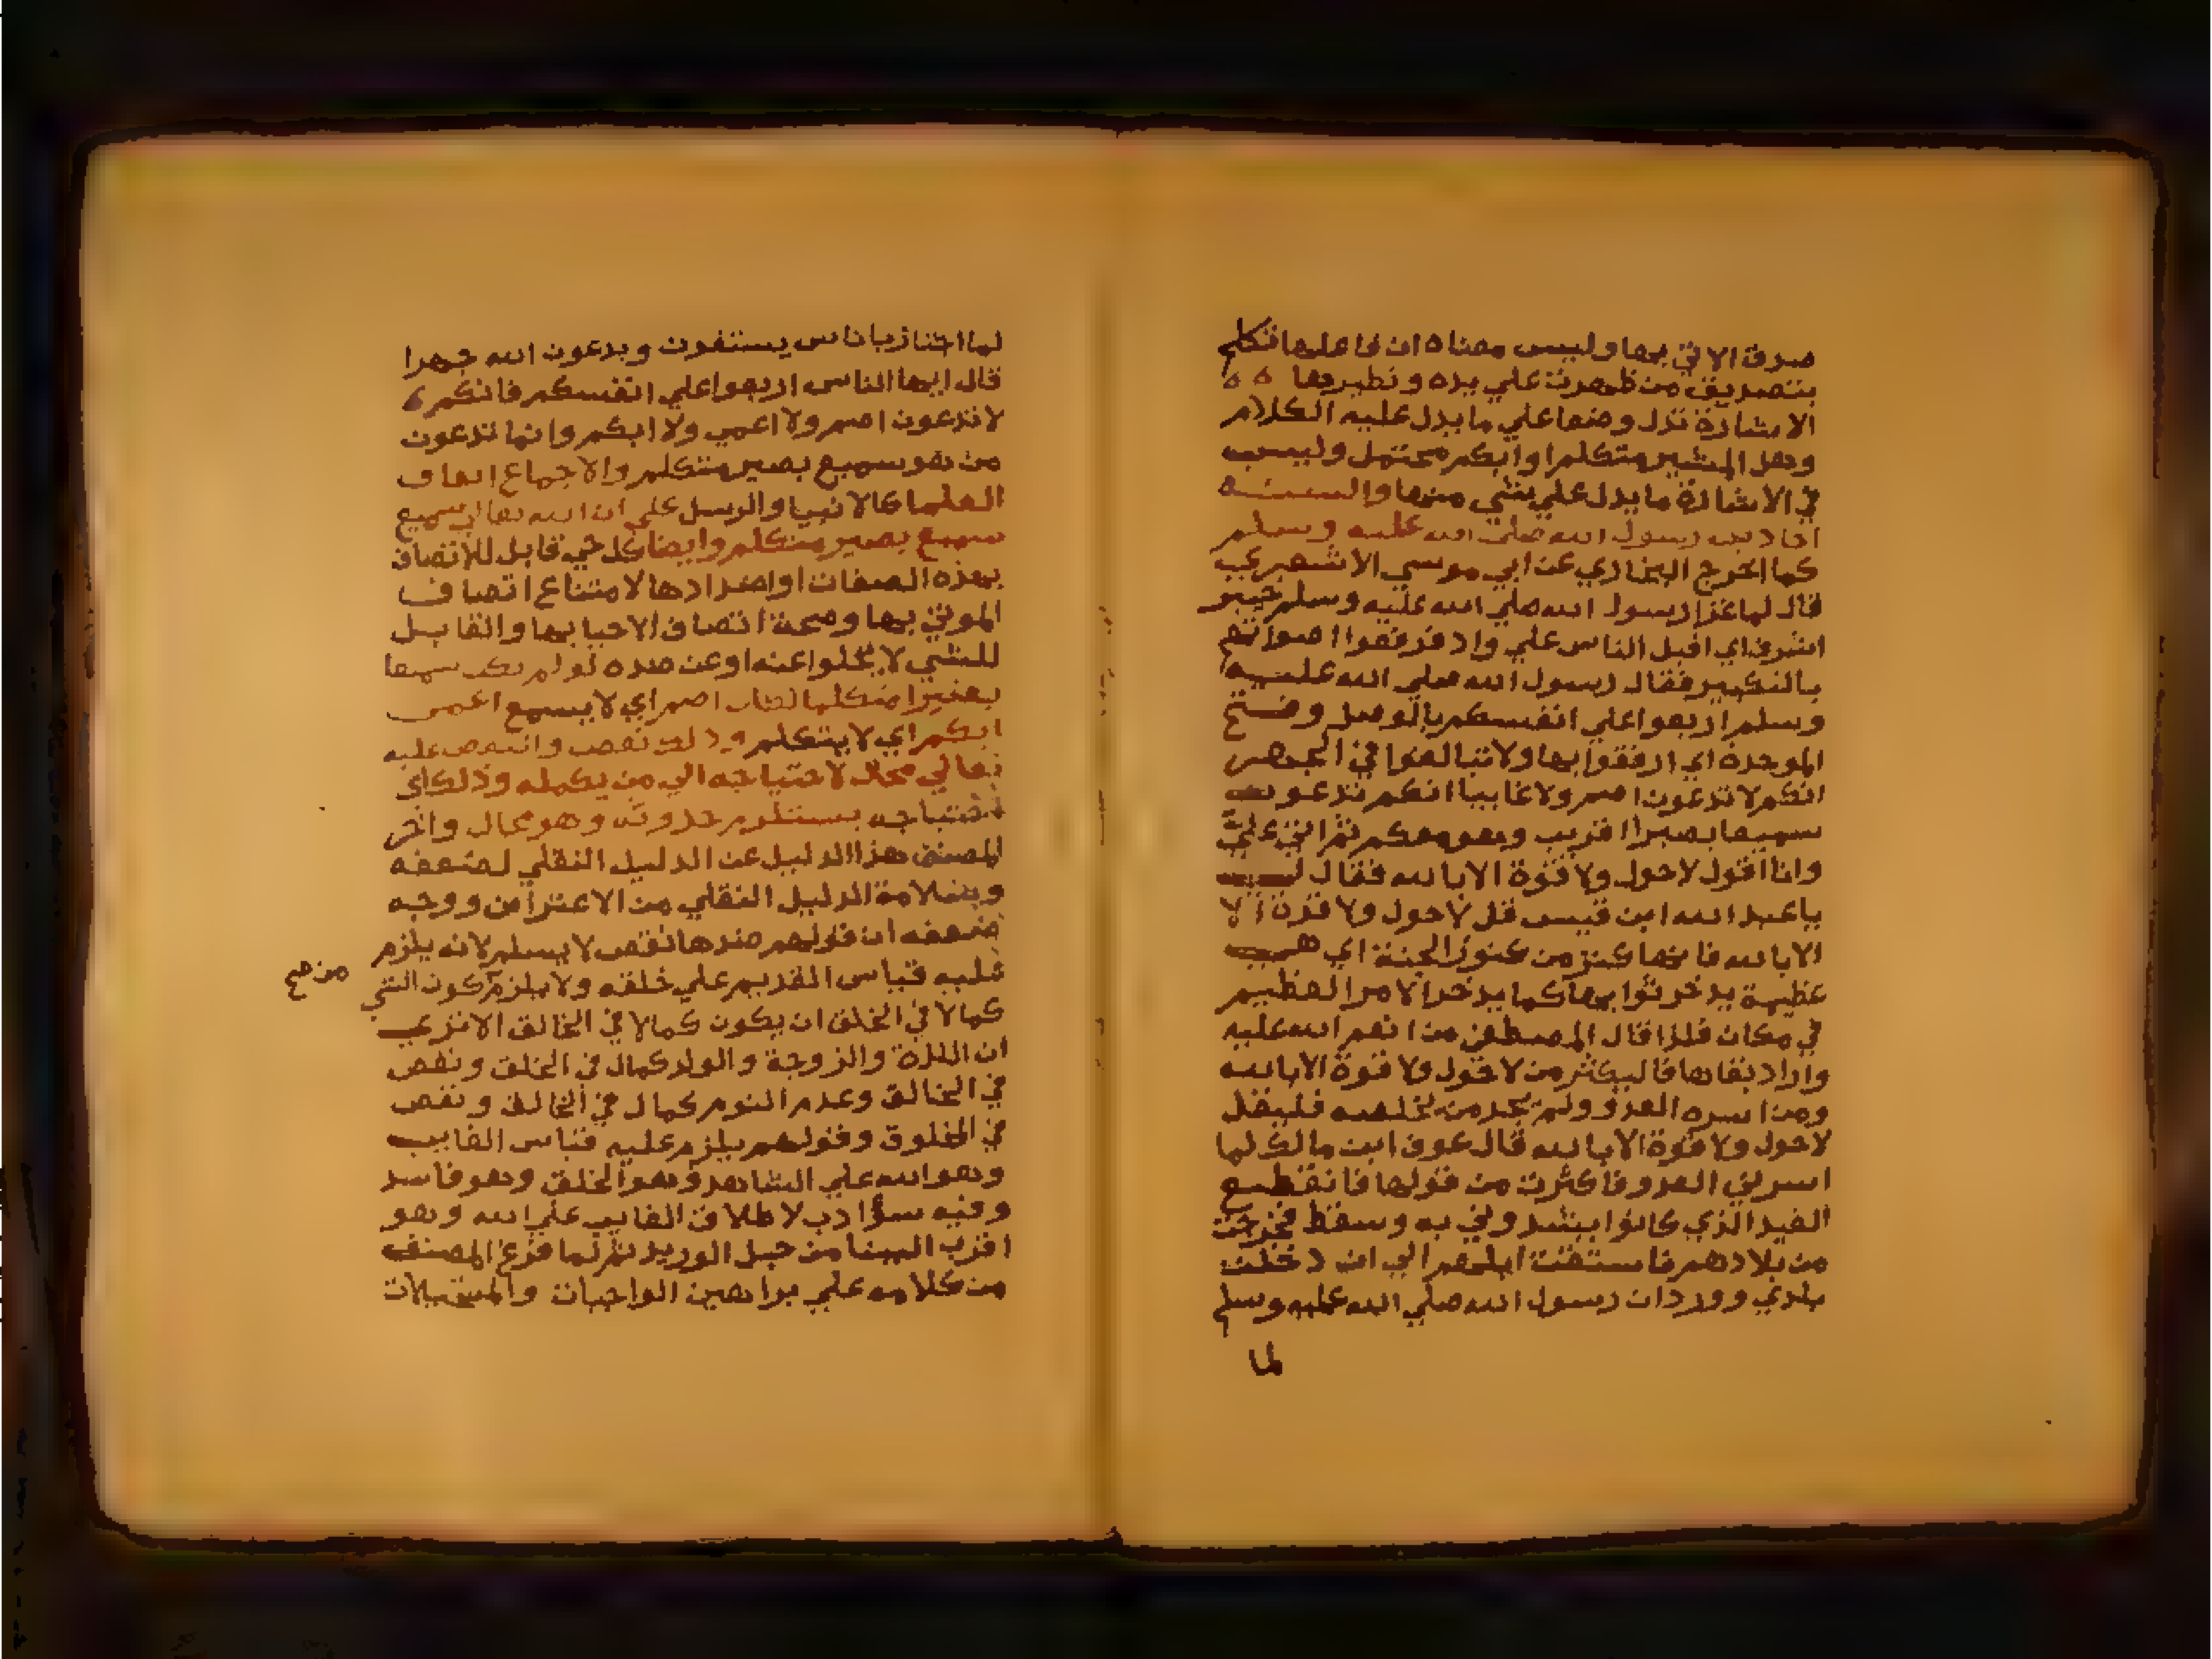 صدق الاتي بها وليس معناه ان فاعلها تكلم
بتصديق من ظهرت علي يده ونظيرها ه ه
الاشارة تدل وضعا علي ما يدل عليه الكلام
وهل المشير متكلم او ابكم محتمل وليس
في الاشارة ما يدل علي شي منها والسنة
احاديث رسول الله صلي الله عليه وسلم
كما اخرج البخاري عن ابي موسي الاشعري
قال لما غزا رسول الله صلي الله عليه وسلم خيبر
اشرف اي اقبل الناس علي واد فرفعوا اصواتهم
بالتكبير فقال رسول الله صلي الله عليه
وسلم اربعوا علي انفسكم بالوصل وفتح
الموحدة اي ارفقوا بها ولا تبالغوا في الجهر
انكم لا تدعون اصم ولا غايبا انكم تدعون
سميعا بصيرا قريب وهو معكم ثم اتي علي
وانا اقول لا حول ولا قوة الا بالله فقال لي
يا عبد الله ابن قيس قل لا حول ولا قوة الا
الا بالله فانها كنز من كنوز الجنة اي هي
عظيمة يدخر ثوابها كما يدخر الامر العظيم
في مكان فلذا قال المصطفي من انعم الله عليه
واراد بقاها فاليكثر من لا حول ولا قوة الا بالله
ومن اسره العدو ولم يجد من يخلصه فليقل
لا حول ولا قوة الا بالله قال عوف ابن مالك لما
اسرني العدو فاكثرت من قولها فانقطع
القيد الذي كانوا يشدوني به وسقط فخرجت
من بلادهم فاستقت ابلهم الي ان دخلت
بلدي وورد ان رسول الله صلي الله عليه وسلم
لما
لما اجتاز باناس يستفدن ويدعون الله جهرا
قال ايها الناس اربعوا علي انفسكم فانكم
لا تدعون اصم ولا اعمي ولا ابكم وانما تدعون
من هو سميع بصير متكلم والاجماع اتفاق
العلما كالانبيا والرسل علي ان الله تعالي سميع
سميع بصير متكلم وايضا كل حي قابل للاتصاف
بهذه الصفات او اضدادها لامتناع اتصاف
الموتي بها وصحة اتصاف الاحيا بها والقابل
للشي لا يخلوا عنه او عن ضده لو لم يكن سميعا
بصيرا متكلما لكان اصم اي لا يسمع اعمى
ابكم اي لا يتكلم وذلك نقص والنقص عليه
تعالي محال لاحتياجه الي من يكمله وذلك اي
احتياجه يستلزم حدوثه وهو محال واخر
المصنف هذا الدليل عن الدليل النقلي لضعفه
وسلامة الدليل النقلي من الاعتراض ووجه
ضعفه ان قولهم ضدها نقص لا يسلم لانه يلزم
عليه قياس القديم علي خلقه ولا يلزم كون الشي
من صح
كمالا في الخلق ان يكون كمالا في الخالق الا تري
ان اللذة والزوجة والولد كمال في الخلق ونقص
في الخالق وعدم النوم كمال في الخالق ونقص
في المخلوق وقولهم يلزم عليه قياس الغايب
وهو الله علي الشاهد وهو الخلق وهو فاسد
وفيه سؤ ادب لاطلاق الغايب علي الله وهو
اقرب الينا من حبل الوريد ثم لما فرغ المصنف
من كلامه علي براهين الواجبات والمستحيلات